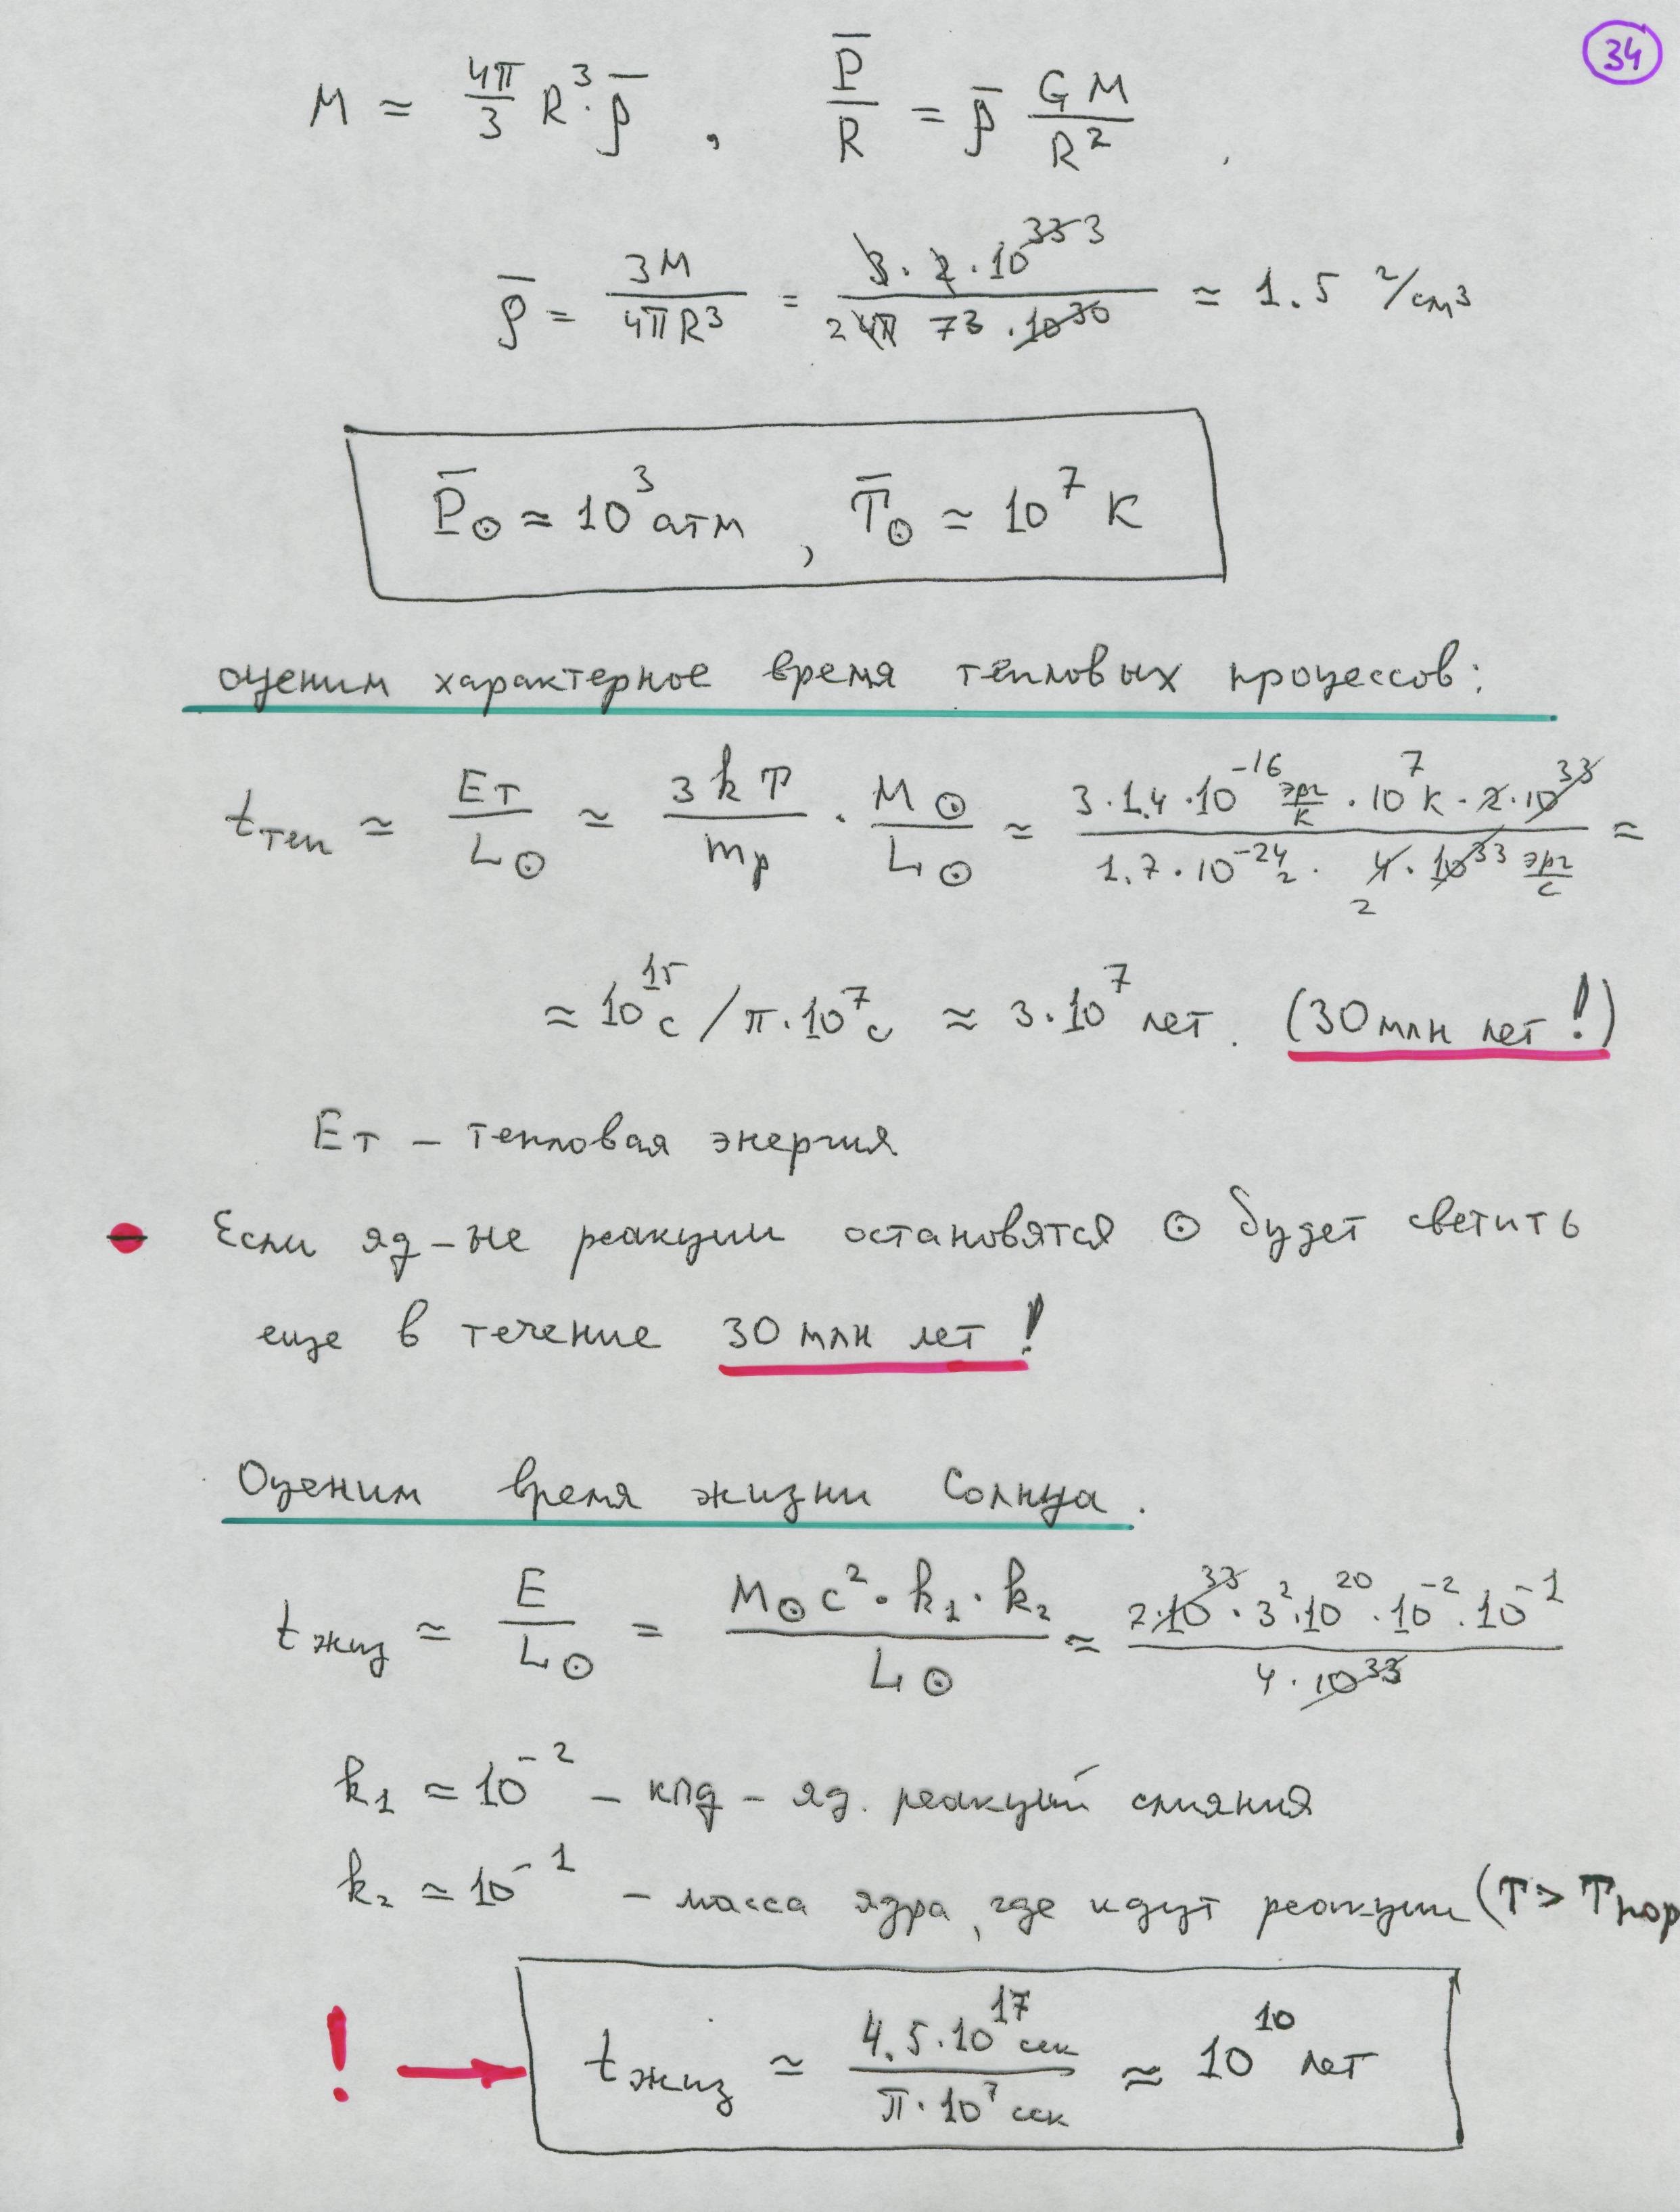 34
M ≈ 4π/3 R³·ρ̄ , P̄/R = ρ̄ GM/R² ,
ρ̄ = 3M/4πR³ = 3·2·10³³ 3/2 4π 7³·10³⁰ ≈ 1.5 г/см³
P̄⊙ ≈ 10³ атм , T̄⊙ ≈ 10⁷ К
оценим характерное время тепловых процессов:
t теп ≈ Eт/L⊙ ≈ 3kT/mp · M⊙/L⊙ ≈ 3·1.4·10⁻¹⁶ эрг/К · 10⁷ К · 2·10³³/1.7·10⁻²⁴ г · 4·10³³ эрг/с 2 ≈
≈ 10¹⁵ с / π·10⁷ с ≈ 3·10⁷ лет. (30 млн лет!)
Eт – тепловая энергия
Если яд-ые реакции остановятся ⊙ будет светить
еще в течение 30 млн лет!
Оценим время жизни Солнца.
t жиз ≈ E/L⊙ = M⊙c²·k₁·k₂/L⊙ ≈ 2·10³³·3²·10²⁰·10⁻²·10⁻¹/4·10³³
k₁ ≈ 10⁻² – кпд – яд. реакций слияния
k₂ ≈ 10⁻¹ – масса ядра, где идут реакции (T > Tпор
! → t жиз ≈ 4.5·10¹⁷ сек/π·10⁷ сек ≈ 10¹⁰ лет